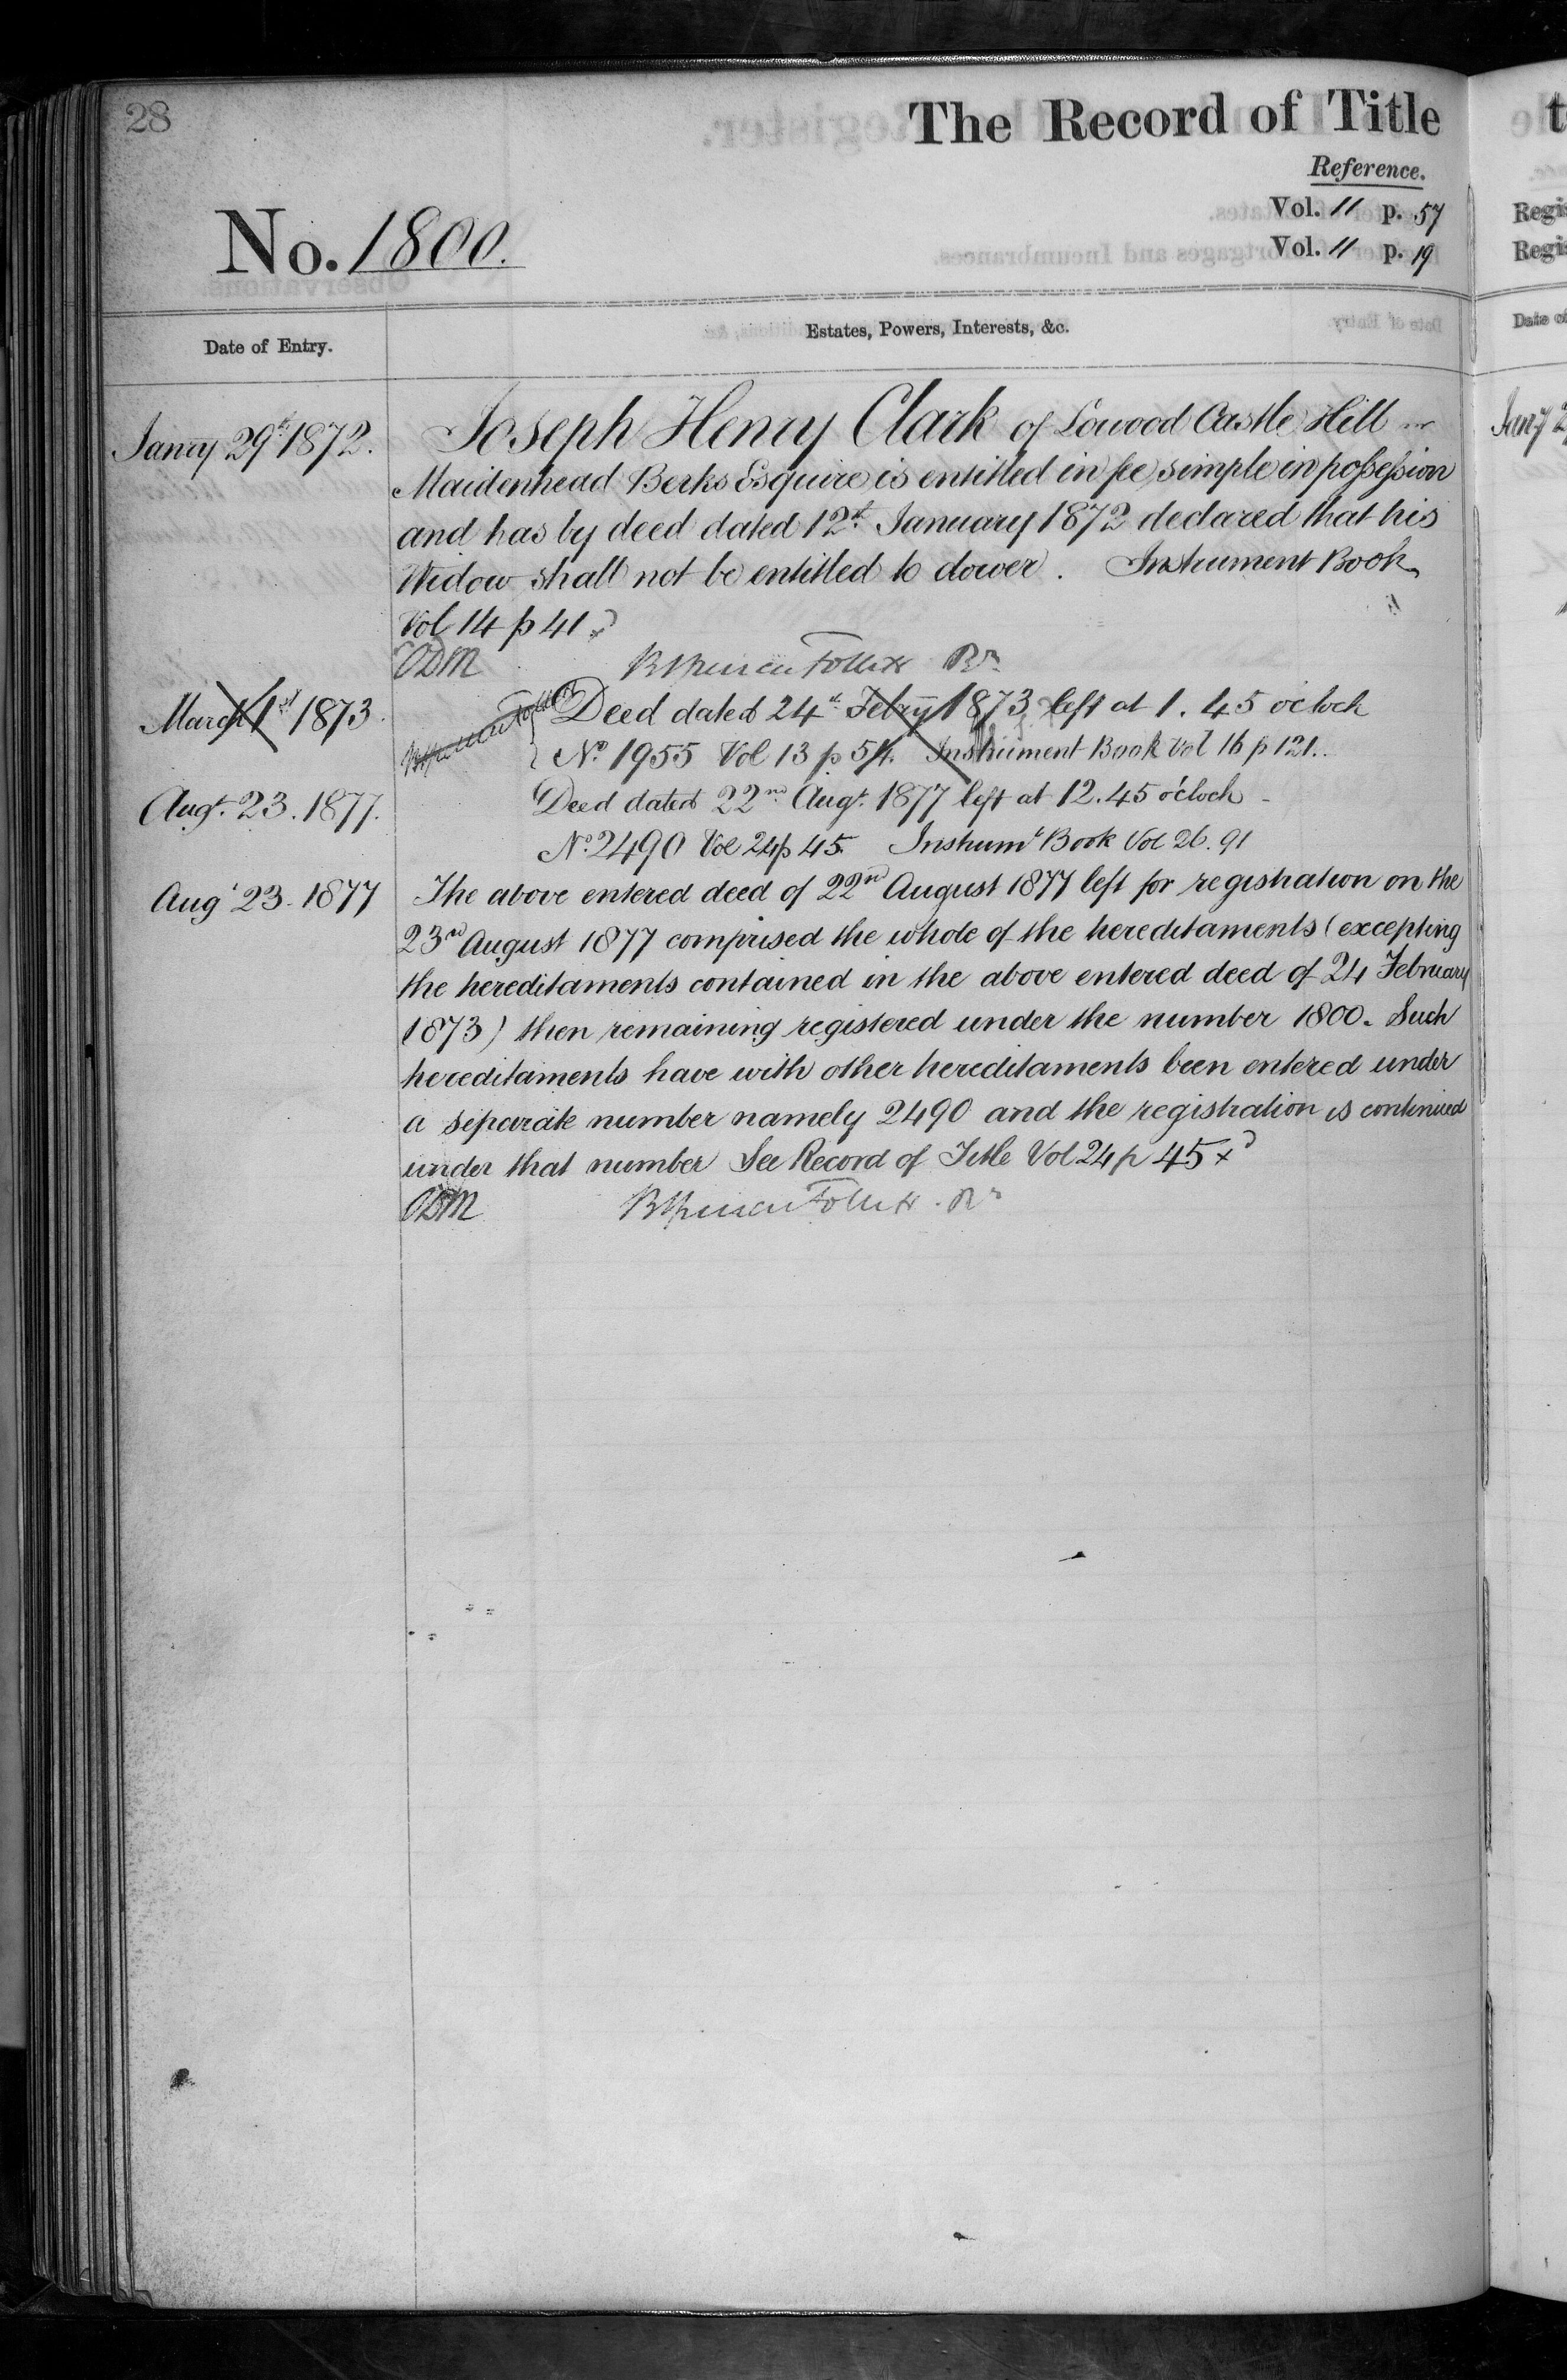 28
The Record of Title
Reference.
Vol. 11 p. 57
Vol. 11 p. 19
No. 1800.
Date of Entry.
Estates, Powers, Interests, &c.
Jany 29th 1872.
Joseph Henry Clark of Lowood Castle Hill
Maidenhead Berks Esquire is entitled in fee simple in possession
and has by deed dated 12th January 1872 declared that his
Widow shall not be entitled to dower. Instrument Book
Vol 14 p 41 xd
ODM Follett Rr
March 1st 1873.
Deed dated 24th Febry 1873 left at 1.45 o'clock
No 1955 Vol 13 p 54. Instrument Book Vol 16 p 121.
Augt. 23. 1877.
Deed dated 22nd Augt. 1877 left at 12.45 o'clock
No 2490 Vol 24 p 45. Instrumt Book Vol 26. 91
Augt 23. 1877
The above entered deed of 22nd August 1877 left for registration on the
23rd August 1877 comprised the whole of the hereditaments (excepting
the hereditaments contained in the above entered deed of 24 February
1873) then remaining registered under the number 1800. Such
hereditaments have with other hereditaments been entered under
a separate number namely 2490 and the registration is continued
under that number See Record of Title Vol 24 p 45 xd
ODM Follett. Rr
Regis
Regis
Date of
Jany 2